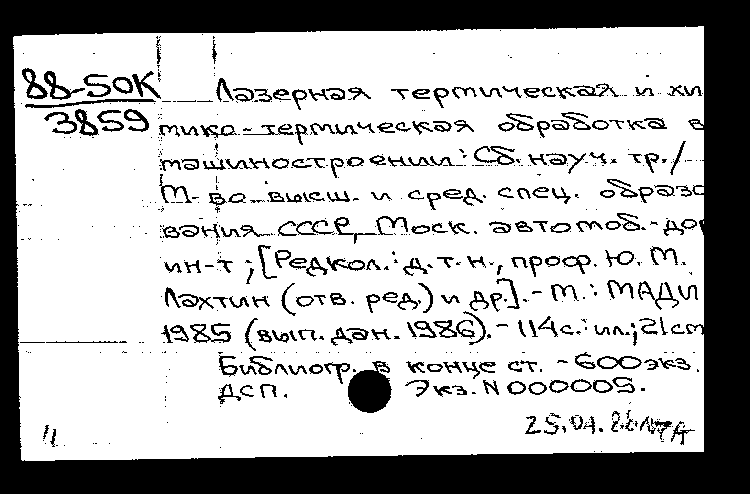 88-50К
3859
Лазерная термическая и хи
мико-термическая обработка в
машиностроении: Сб. науч. тр./
М-во высш. и сред. спец. образо
вания СССР, Моск. автомоб.-дор
ин-т; [Редкол.: д.т.н., проф. Ю. М.
Лахтин (отв. ред.) и др.]. - М.: МАДИ
1985 (вып. дан. 1986). - 114с.: ил.; 21см
Библиогр. в конце ст. - 600экз.
ДСП. Экз. N 000005.
25.04.